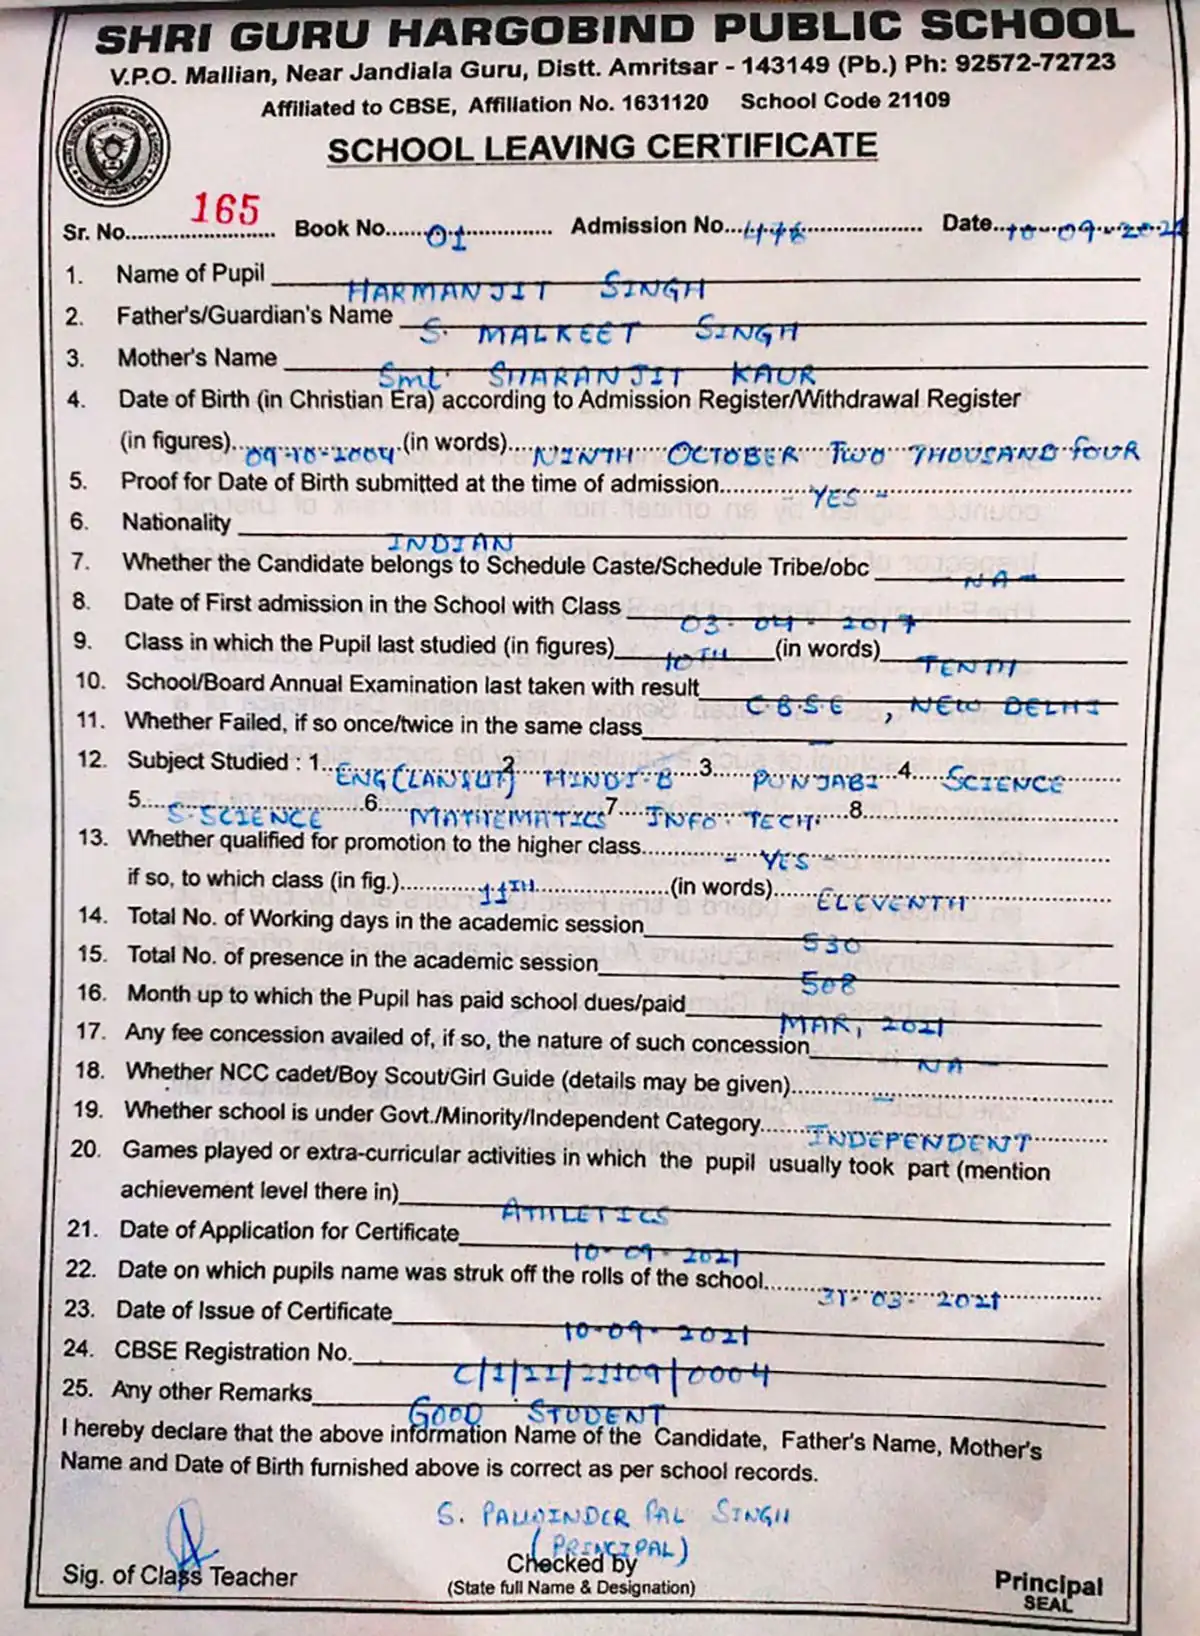 SHRI GURU HARGOBIND PUBLIC SCHOOL
V.P.O. Mallian, Near Jandiala Guru, Distt. Amritsar - 143149 (Pb.) Ph: 92572-72723
Affiliated to CBSE, Affiliation No. 1631120 School Code 21109
SCHOOL LEAVING CERTIFICATE
Sr. No. 165 Book No. 01 Admission No. 476 Date 10-09-2021
1. Name of Pupil HARMANJIT SINGH
2. Father's/Guardian's Name S. MALKEET SINGH
3. Mother's Name Smt. SHARANJIT KAUR
4. Date of Birth (in Christian Era) according to Admission Register/Withdrawal Register
(in figures) 09-10-2004 (in words) NINTH OCTOBER TWO THOUSAND FOUR
5. Proof for Date of Birth submitted at the time of admission - YES -
6. Nationality INDIAN
7. Whether the Candidate belongs to Schedule Caste/Schedule Tribe/obc - NA -
8. Date of First admission in the School with Class 03-04-2017
9. Class in which the Pupil last studied (in figures) 10TH (in words) TENTH
10. School/Board Annual Examination last taken with result C.B.S.E, NEW DELHI
11. Whether Failed, if so once/twice in the same class —
12. Subject Studied : 1. ENG(LAN&LIT) 2 HINDI-B 3 PUNJABI 4 SCIENCE
5. S.SCIENCE 6 MATHEMATICS 7 INFO. TECH. 8
13. Whether qualified for promotion to the higher class - YES -
if so, to which class (in fig.) 11TH (in words) ELEVENTH
14. Total No. of Working days in the academic session 530
15. Total No. of presence in the academic session 508
16. Month up to which the Pupil has paid school dues/paid MAR, 2021
17. Any fee concession availed of, if so, the nature of such concession - NA -
18. Whether NCC cadet/Boy Scout/Girl Guide (details may be given) —
19. Whether school is under Govt./Minority/Independent Category INDEPENDENT
20. Games played or extra-curricular activities in which the pupil usually took part (mention
achievement level there in) ATHLETICS
21. Date of Application for Certificate 10-09-2021
22. Date on which pupils name was struk off the rolls of the school 31-03-2021
23. Date of Issue of Certificate 10-09-2021
24. CBSE Registration No. C/1/21/21109/0004
25. Any other Remarks GOOD STUDENT
I hereby declare that the above information Name of the Candidate, Father's Name, Mother's
Name and Date of Birth furnished above is correct as per school records.
S. PALWINDER PAL SINGH
(PRINCIPAL)
Sig. of Class Teacher Checked by Principal
(State full Name & Designation) SEAL